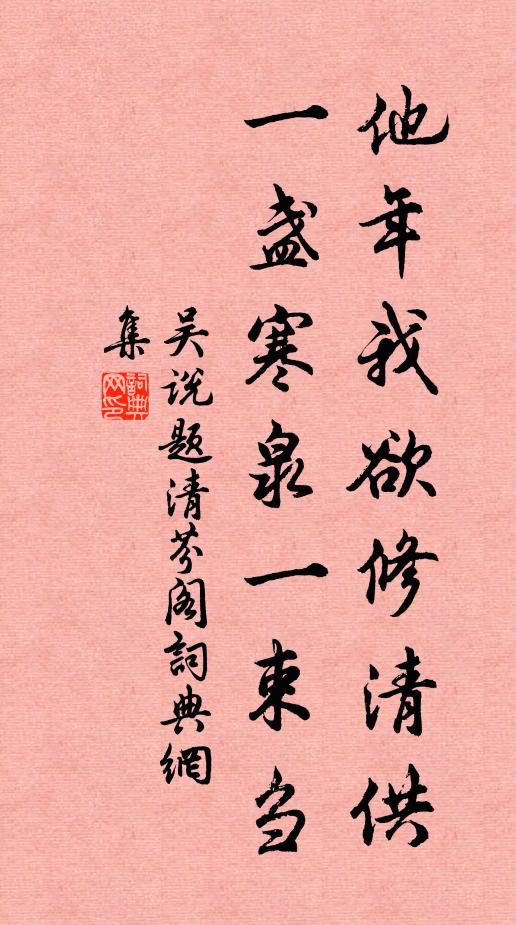 他年我欲修清供
一盏寒泉一束刍
吴说题清芬阁詞典網
集
詞典
网印